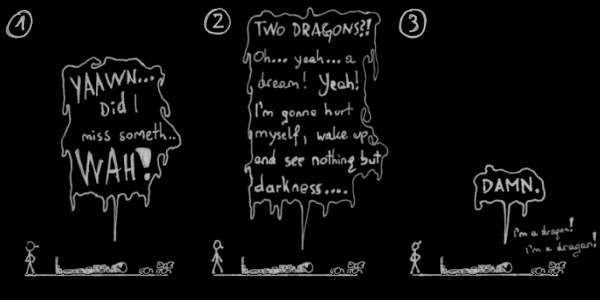 1
YAAWN...
Did I
miss someth..
WAH!
2
TWO DRAGONS?!
Oh... yeah... a
dream! Yeah!
I'm gonna hurt
myself, wake up
and see nothing but
darkness....
3
DAMN.
I'm a dragon!
I'm a dragon!